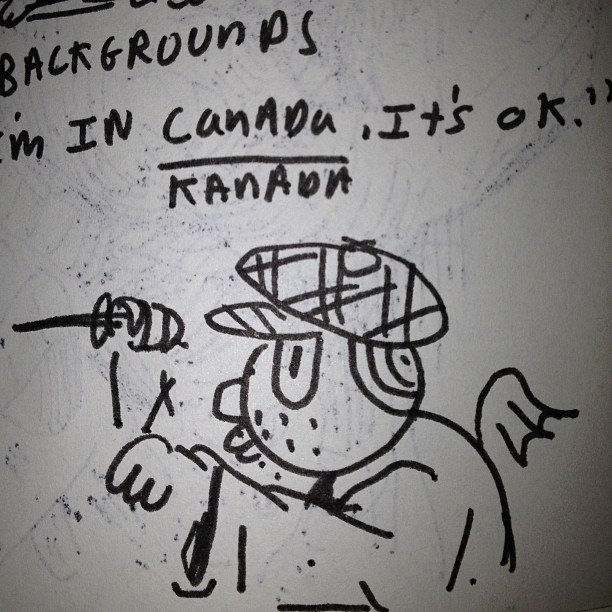 BACKGROUNDS
I'm IN CanADa, It's OK."
KANADA